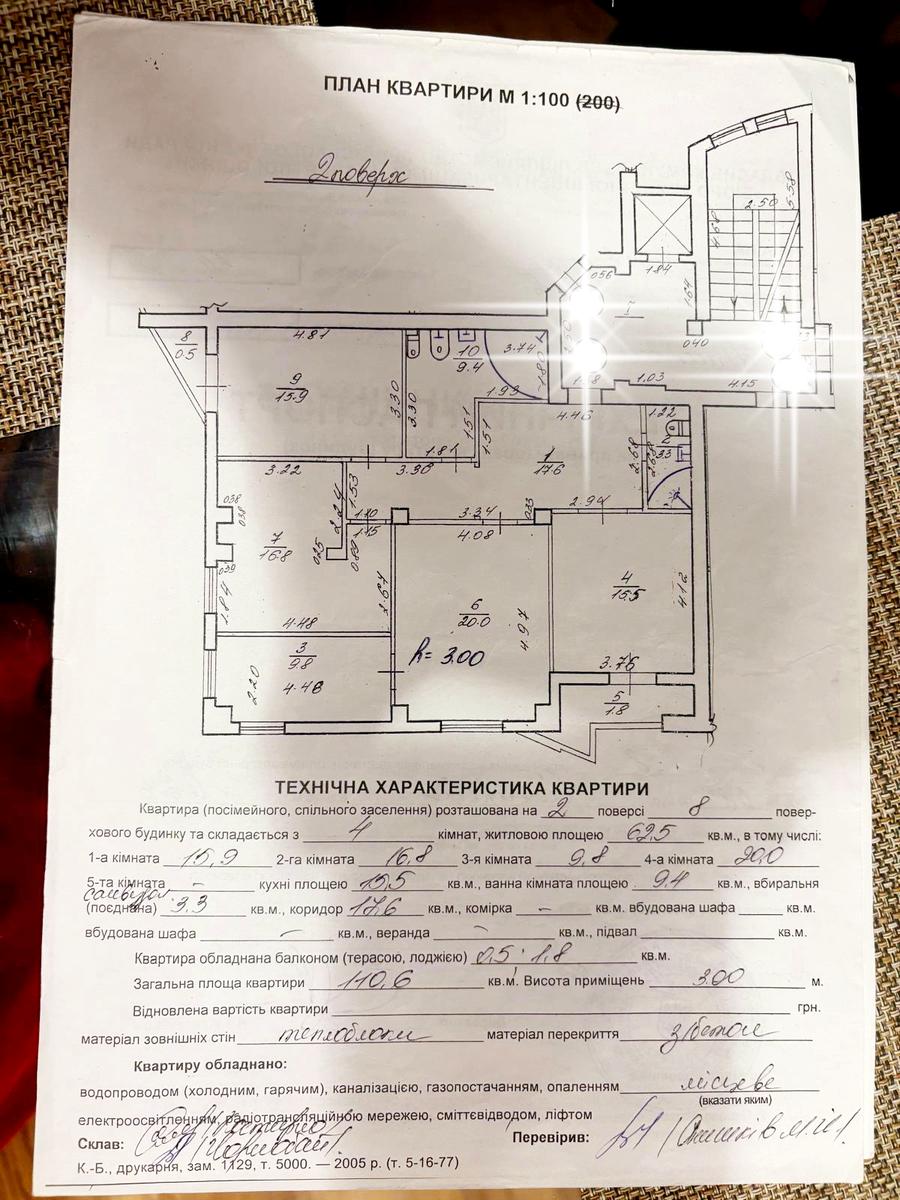 ПЛАН КВАРТИРИ М 1:100 (200)
2 поверх
5.58
2.50
4.68
1.84
056
1.64
I
040
1.03
4.15
8
0.5
4.81
9
15.9
3.30
3.30
10
9.4
3.74
1.80
1.99
1.51
1.51
1.81
4.46
1
17.6
2.68
1.22
2
3.3
2.68
3.22
3.30
1.53
2.24
1.10
1.15
3.34
4.08
0.35
2.94
038
038
7
16.8
025
0.89
039
1.84
4.48
2.67
6
20.0
4.97
h= 3.00
4
15.5
4.12
3.76
3
9.8
2.20
4.48
5
1.8
ТЕХНІЧНА ХАРАКТЕРИСТИКА КВАРТИРИ
Квартира (посімейного, спільного заселення) розташована на 2 поверсі 8 повер-
хового будинку та складається з 4 кімнат, житловою площею 62,5 кв.м., в тому числі:
1-а кімната 15,9 2-га кімната 16,8 3-я кімната 9,8 4-а кімната 20,0
5-та кімната - кухні площею 15,5 кв.м., ванна кімната площею 9,4 кв.м., вбиральня
санвузол
(поєднана) 3,3 кв.м., коридор 17,6 кв.м., комірка - кв.м. вбудована шафа кв.м.
вбудована шафа - кв.м., веранда - кв.м., підвал кв.м.
Квартира обладнана балконом (терасою, лоджією) 0,5; 1,8 кв.м.
Загальна площа квартири 110,6 кв.м. Висота приміщень 3.00 м.
Відновлена вартість квартири грн.
матеріал зовнішніх стін теплоблоки матеріал перекриття з/бетон
Квартиру обладнано:
водопроводом (холодним, гарячим), каналізацією, газопостачанням, опаленням місцеве
(вказати яким)
електроосвітленням, радіотрансляційною мережею, сміттєвідводом, ліфтом
Склав: Перевірив:
К.-Б., друкарня, зам. 1129, т. 5000. — 2005 р. (т. 5-16-77)